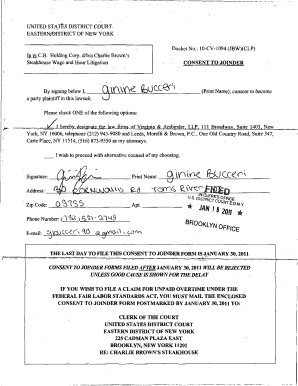 UNITED STATES DISTRICT COURT
EASTERN DISTRICT OF NEW YORK
Docket No.: 10-CV-1094 (JBW)(CLP)
In re C.B. Holding Corp. d/b/a Charlie Brown's
Steakhouse Wage and Hour Litigation
CONSENT TO JOINDER
By signing below I, Ginine Bucceri (Print Name), consent to become
a party plaintiff in this lawsuit.
Please check ONE of the following options:
I hereby designate the law firms of Virginia & Ambinder, LLP, 111 Broadway, Suite 1403, New
York, NY 10006, telephone (212) 943-9080 and Leeds, Morelli & Brown, P.C., One Old Country Road, Suite 347,
Carle Place, NY 11514, (516) 873-9550 as my attorneys.
I wish to proceed with alternative counsel of my choosing.
Signature: Print Name: Ginine Bucceri
Address: Rd Toms River
FILED
IN CLERK'S OFFICE
U.S. DISTRICT COURT E.D.N.Y.
Zip Code: Apt.
★ JAN 18 2011 ★
Phone Number:
BROOKLYN OFFICE
E-mail: @gmail.com
THE LAST DAY TO FILE THIS CONSENT TO JOINDER FORM IS JANUARY 30, 2011
CONSENT TO JOINDER FORMS FILED AFTER JANUARY 30, 2011 WILL BE REJECTED
UNLESS GOOD CAUSE IS SHOWN FOR THE DELAY
IF YOU WISH TO FILE A CLAIM FOR UNPAID OVERTIME UNDER THE
FEDERAL FAIR LABOR STANDARDS ACT, YOU MUST MAIL THE ENCLOSED
CONSENT TO JOINDER FORM POSTMARKED BY JANUARY 30, 2011 TO:
CLERK OF THE COURT
UNITED STATES DISTRICT COURT
EASTERN DISTRICT OF NEW YORK
225 CADMAN PLAZA EAST
BROOKLYN, NEW YORK 11201
RE: CHARLIE BROWN'S STEAKHOUSE